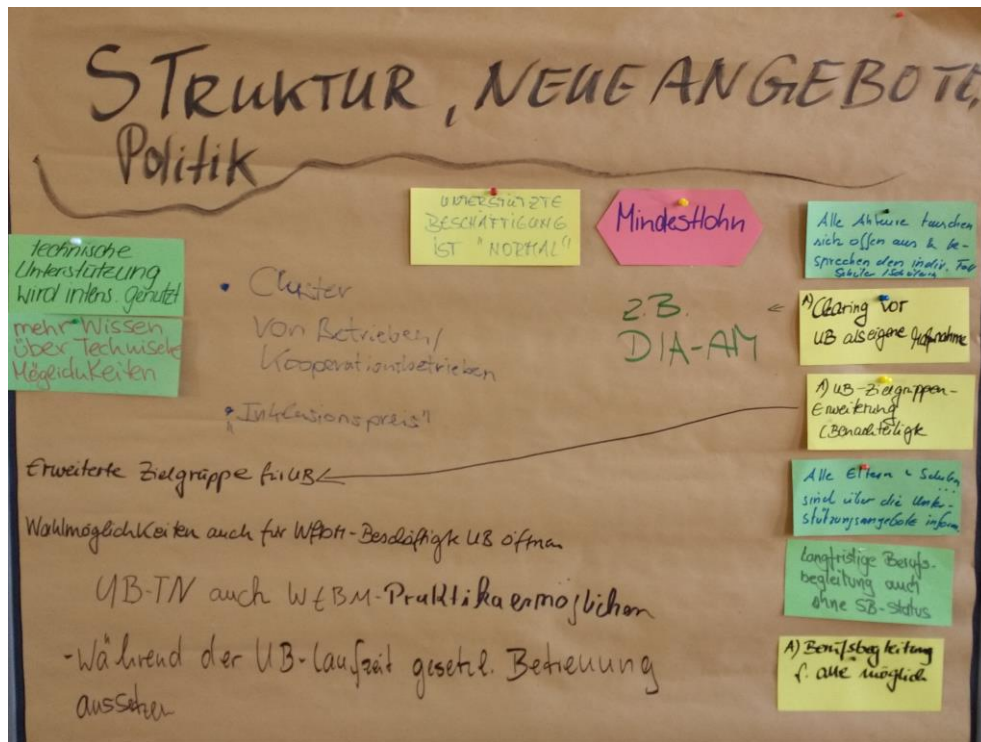 STRUKTUR, NEUE ANGEBOTE,
Politik
UNTERSTÜTZTE
BESCHÄFTIGUNG
IST "NORMAL"
Mindestlohn
Alle Akteure tauschen
sich offen aus & be-
sprechen den indiv. Fall
Schüler/Schülerin
technische
Unterstützung
wird intens. genutzt
mehr Wissen
über Technische
Möglichkeiten
• Cluster
von Betrieben/
Kooperationsbetrieben
• "Inklusionspreis"
z.B.
DIA-AM
A) Clearing vor
UB als eigene Maßnahme
A) UB-Zielgruppen-
Erweiterung
(Benachteiligte
Erweiterte Zielgruppe für UB
Alle Eltern & Schulen
sind über die Unter-
stützungsangebote inform.
Wahlmöglichkeiten auch für WfbM-Beschäftigte UB öffnen
Langfristige Berufs-
begleitung auch
ohne SB-Status
UB-TN auch WfBM-Praktika ermöglichen
-Während der UB-Laufzeit gesetzl. Betreuung
aussetzen
A) Berufsbegleitung
f. alle möglich